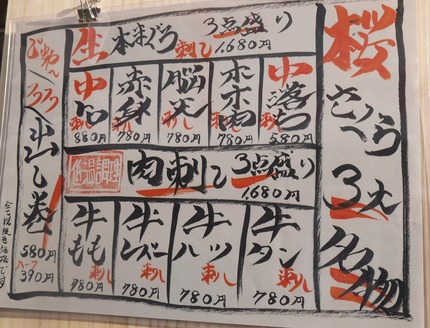 桜
さくら
3大
名物
生本まぐろ刺し
3点盛り
1,680円
中落ち
刺し
580円
ホホ肉
刺し
780円
脳天
刺し
780円
赤身
刺し
780円
中トロ
刺し
880円
低温調理
肉刺し
3点盛り
1,680円
牛タン
刺し
780円
牛ハツ
刺し
780円
牛レバー
刺し
780円
牛もも
刺し
780円
出し巻き
580円
ハーフ
390円